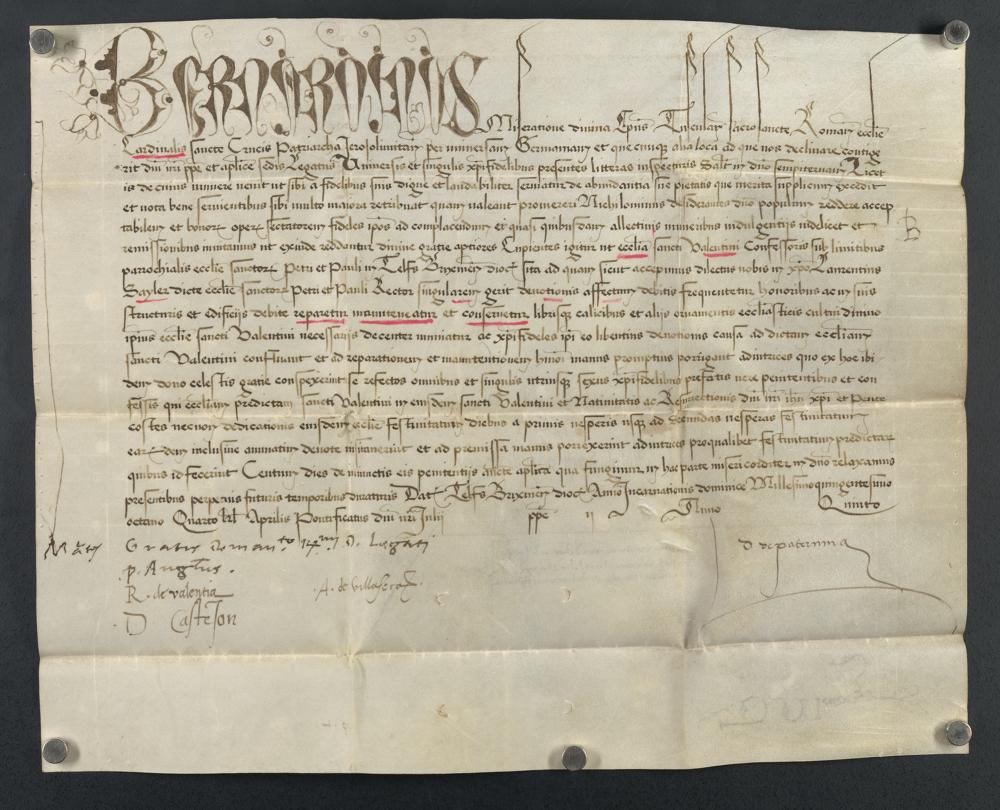 BERNARDINUS Miseratione divina Ep̄us Tusculan̄ Sacrosancte Romane ecclie
Cardinalis sancte Crucis Patriarcha Jerosolimitan̄ per universam Germaniam et que cuiq alia loca ad que nos declinare contige
rit dn̄i nr̄i ppe et aplice sedis Legatus Universis et singulis xp̄ifidelibus presentes litteras inspecturis Salt̄m in dn̄o sempiternam Licet
is de cuius munere venit ut sibi a fidelibus suis digne et laudabiliter serviatur de abundantia sue pietatis que merita supplicum excedit
et vota bene servientibus sibi multo maiora retribuat quam valeant promereri Nichilominus desiderantes dn̄o populum reddere accep
tabilem et bonoꝝ operum sectatorem fideles ip̄os ad complacendum ei quasi quibusdam allectivis muneribus indulgentijs videlicet et
remissionibus invitamus ut exinde reddantur divine gratie aptiores Cupientes igitur ut ecclia sancti Valentini Confessoris sub limitibus
parochialis ecclie sanctoꝝ Petri et Pauli in Telfs Brixinen̄ dioc̄ sita ad quam sicut accepimus dilectus nobis in xp̄o Laurentius
Sayler dicte ecclie sanctoꝝ Petri et Pauli Rector singularem gerit devotionis affectum debitis frequentetur honoribus ac in suis
structuris et edificijs debite reparetur manuteneatur et conservetur librisq calicibus et alijs ornamentis ecclīasticis cultui divino
ipsius ecclie sancti Valentini necessarijs decenter muniatur ac xp̄ifideles ip̄i eo libentius devotionis causa ad dictam eccliam
sancti Valentini confluant et ad reparationem et manutentionem hmōi manus promptius porrigant adiutrices quo ex hoc ibi
dem dono celestis gratie conspexerint se refectos omnibus et singulis utriusq sexus xp̄ifidelibus prefatis vere penitentibus et con
fessis qui eccliam predictam sancti Valentini in eiusdem sancti Valentini et Nativitatis ac Resurrectionis dn̄i nr̄i ihū xp̄i et Pente
costes necnon dedicationis eiusdem ecclie festivitatum diebus a primis vesperis usq ad secundas vesperas festivitatum
earūdem inclusive annuatim devote visitaverint et ad premissa manus porrexerint adiutrices pro qualibet festivitatum predictaꝝ
quibus id fecerint Centum dies de iniunctis eis penitentijs aucte aplica qua fungimur in hac parte misericorditer in dn̄o relaxamus
presentibus perpetuis futuris temporibus duraturis Dat̄ Telfs Brixinen̄ dioc̄ Anno Incarnationis dominice Millesimoquingentesimo
octavo Quarto kl̄ Aprilis Pontificatus dn̄i nr̄i Julij ppe ii Anno Quinto
B
Gratis de man.to R.mi D. Legati
p. Anglus.
R. de valentia
A. de Villaferax̄
D Castelon
D de paternina